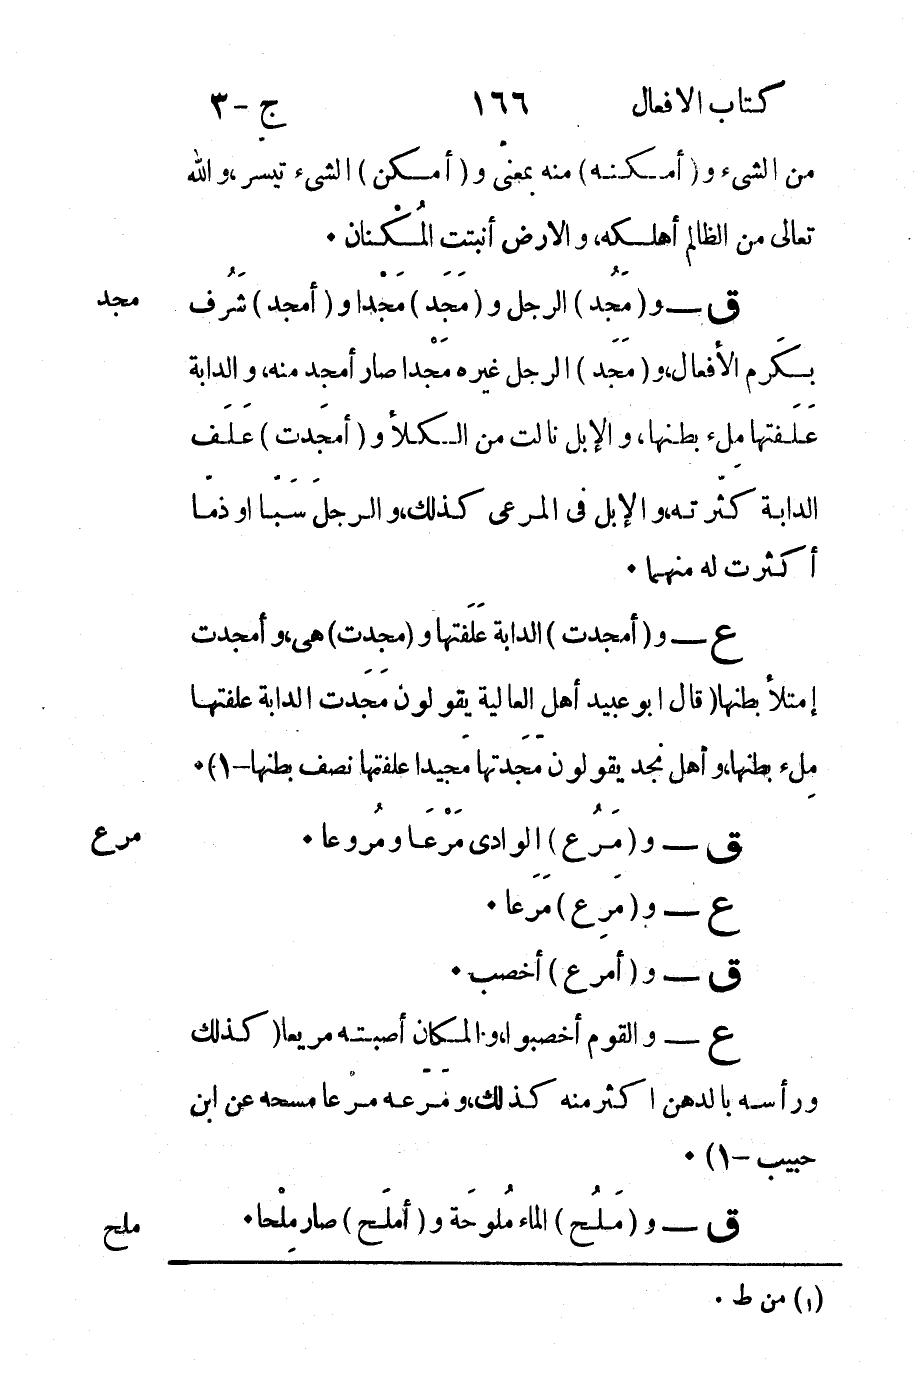 كتاب الافعال ١٦٦ ج -٣
من الشىء و( أمكنه) منه بمعنىً و( أمكن ) الشىء تيسر، والله
تعالى من الظالم أهلكه، والارض أنبتت المُكْنان ٠
ق — و ( مَجُد ) الرجل و ( مَجَد ) مَجْدا و ( أمجد ) شَرُف
بكَرم الأفعال، و( مَجَد ) الرجل غيره مَجْدا صار أمجد منه، والدابة
عَلَفتها مِلء بطنها، والإبل نالت من الكلأ و ( أمجَدت ) عَلَف
الدابة كثّرته، والإبل فى المرعى كذلك، والرجلَ سَبّا او ذمّا
أكثرت له منهما ٠
ع — و( أمجدت ) الدابة عَلَفتها و (مجدت) هى، وأمجدت
إمتلأ بطنها( قال ابو عبيد أهل العالية يقولون مَجَدت الدابة علفتها
مِلء بطنها، وأهل نجد يقولون مَجّدتها مجيدا علفتها نصف بطنها-١)٠
ق — و ( مَرُع ) الوادى مَرْعَا ومُروعا ٠
ع — و ( مَرِع ) مَرَعا ٠
ق — و ( أمرَع ) أخصب ٠
ع — والقوم أخصبوا، والمكان أصبته مريعا( كذلك
ورأسه بالدهن اكثر منه كذلك، ومَرّعه مرْعا مسحه عن ابن
حبيب -١) ٠
ق — و ( مَلُح ) الماء مُلوحَة و ( أملَح ) صار مِلْحا٠
مجد
مرع
ملح
(١) من ط ٠